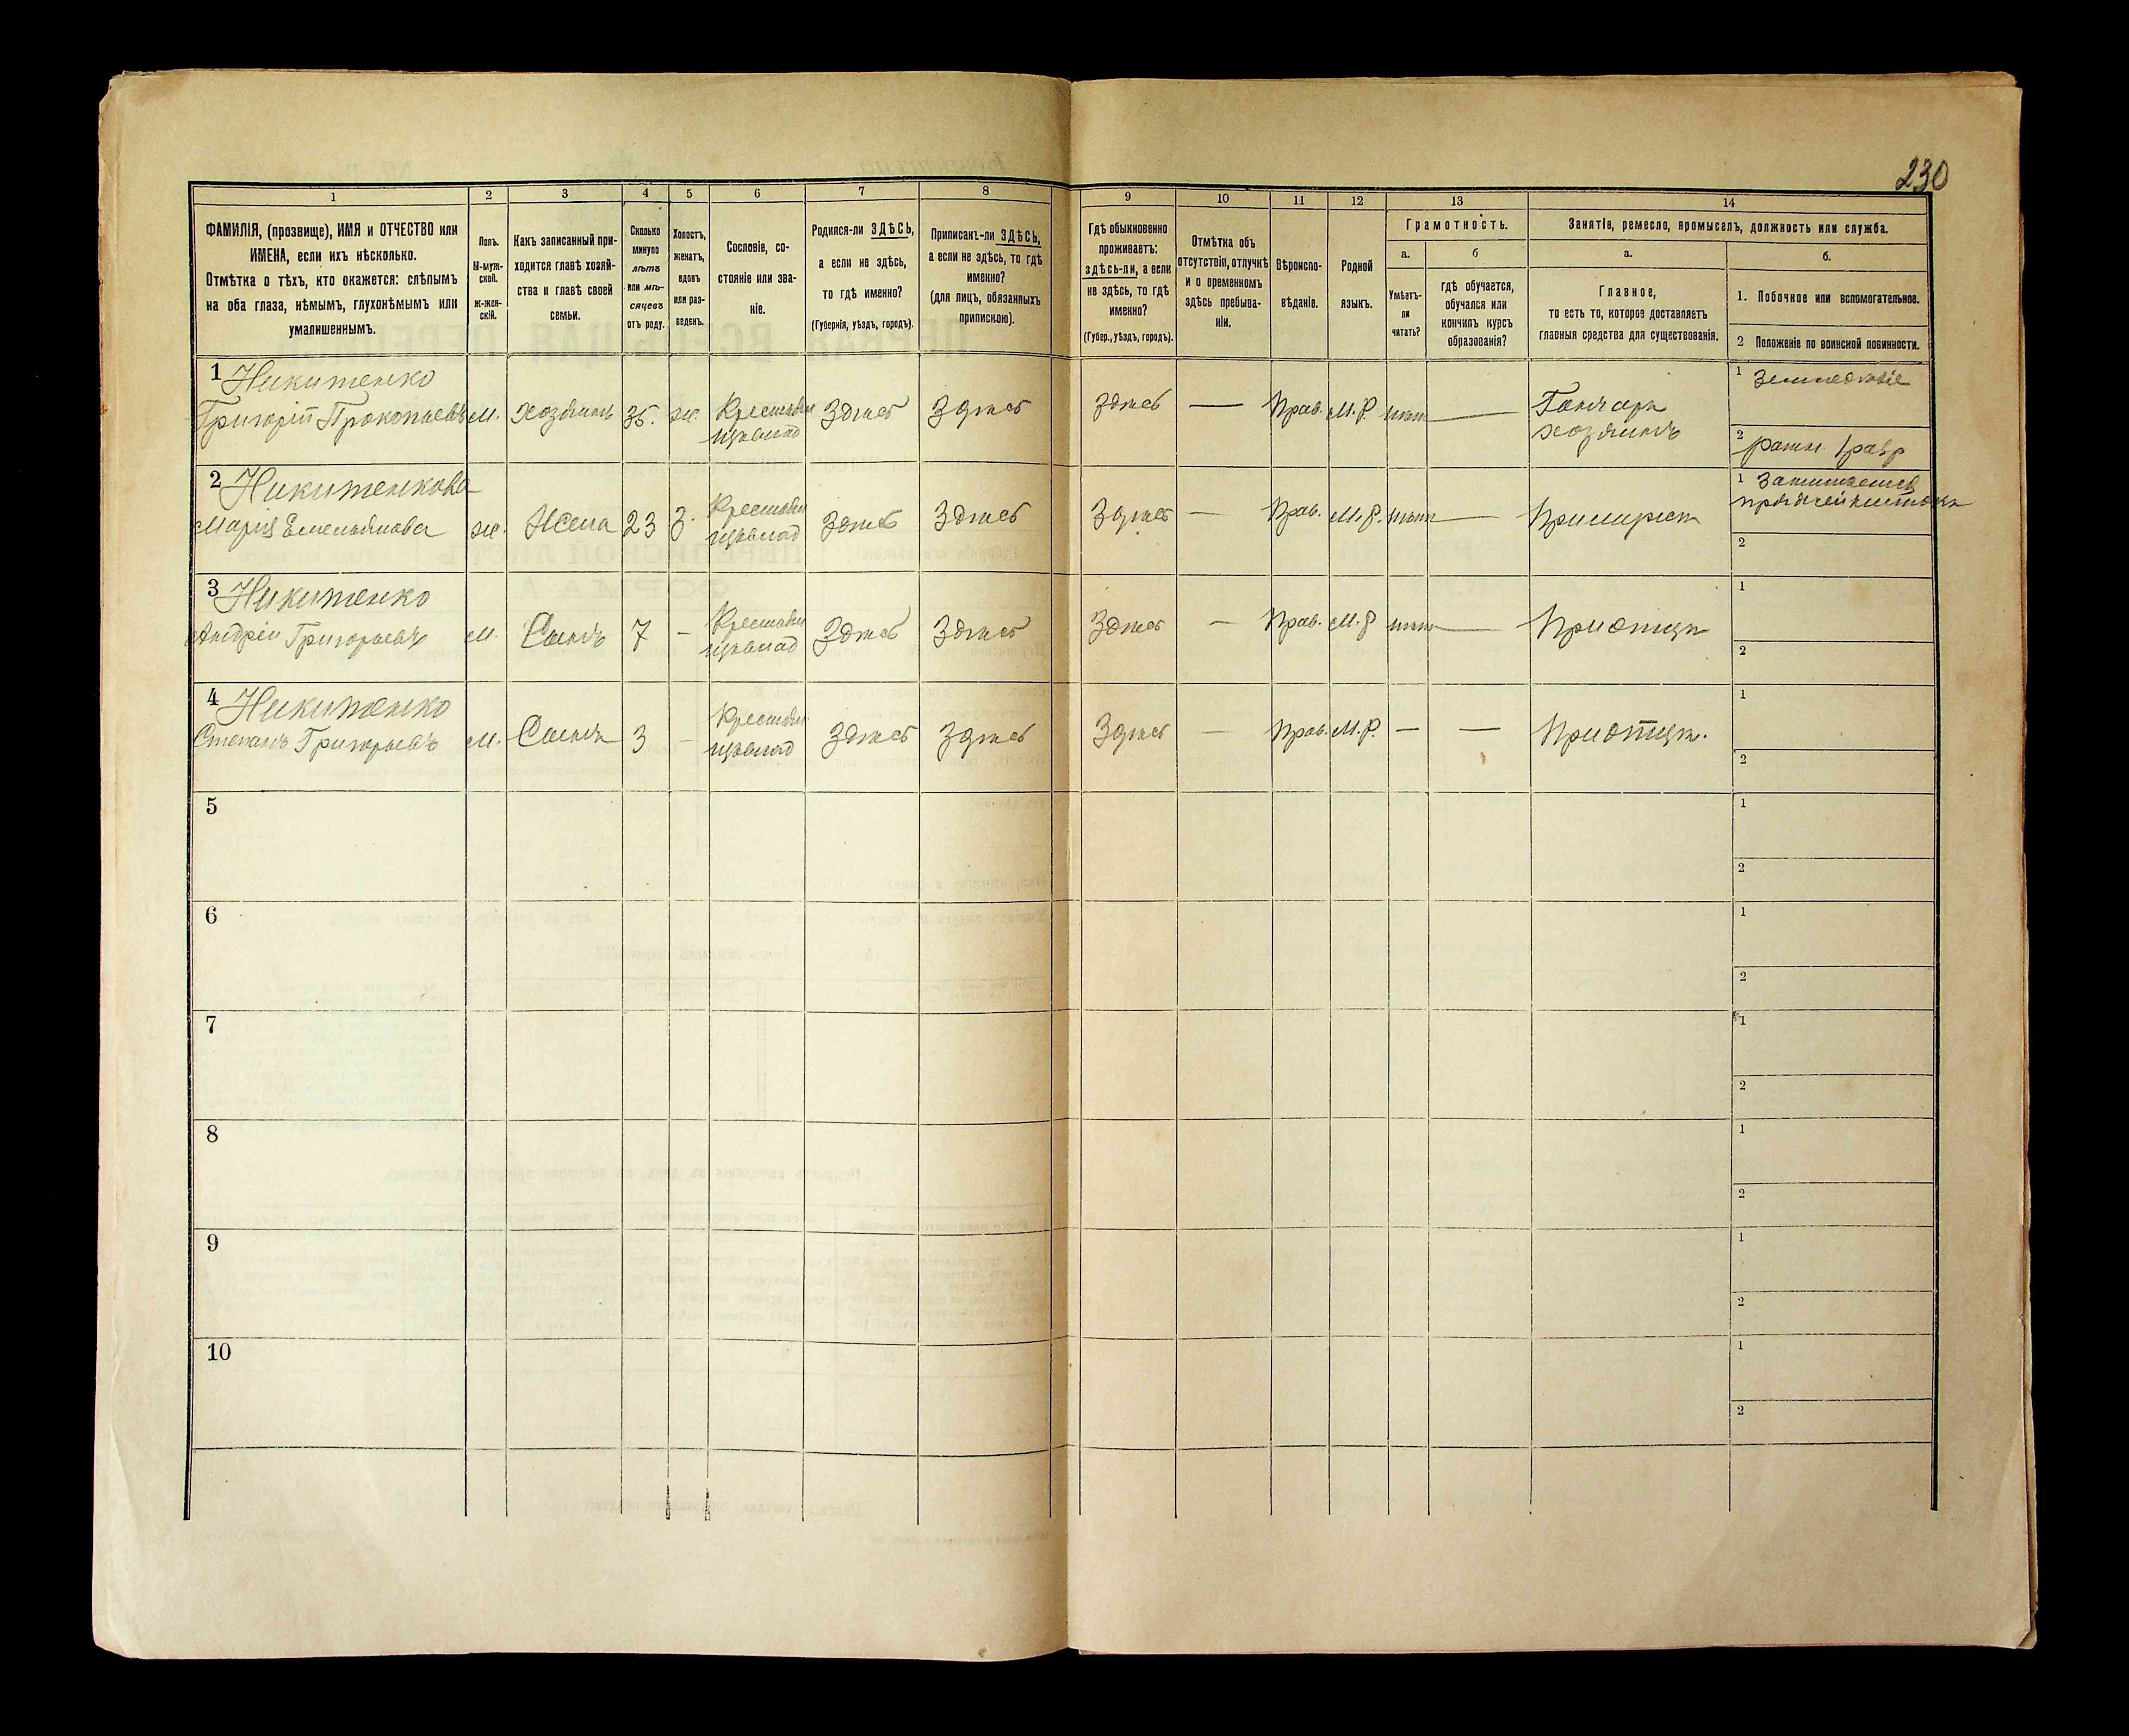 230
1
2
3
4
5
6
7
8
9
10
11
12
13
14
ФАМИЛІЯ, (прозвище), ИМЯ и ОТЧЕСТВО или
ИМЕНА, если ихъ нѣсколько.
Отмѣтка о тѣхъ, кто окажется: слѣпымъ
на оба глаза, нѣмымъ, глухонѣмымъ или
умалишеннымъ.
Полъ.
М-муж-
ской.
ж-жен-
скій.
Какъ записанный при-
ходится главѣ хозяй-
ства и главѣ своей
семьи.
Сколько
минуло
лѣтъ
или мѣ-
сяцевъ
отъ роду.
Холостъ,
женатъ,
вдовъ
или раз-
веденъ.
Сословіе, со-
стояніе или зва-
ніе.
Родился-ли ЗДѢСЬ,
а если не здѣсь,
то гдѣ именно?
(Губернія, уѣздъ, городъ).
Приписанъ-ли ЗДѢСЬ,
а если не здѣсь, то гдѣ
именно?
(для лицъ, обязанныхъ
припискою).
Гдѣ обыкновенно
проживаетъ:
здѣсь-ли, а если
не здѣсь, то гдѣ
именно?
(Губер., уѣздъ, городъ).
Отмѣтка объ
отсутствіи, отлучкѣ
и о временномъ
здѣсь пребыва-
ніи.
Вѣроиспо-
вѣданіе.
Родной
языкъ.
Грамотность.
а.
Умѣетъ-
ли
читать?
б
гдѣ обучается,
обучался или
кончилъ курсъ
образованія?
Занятія, ремесло, промыселъ, должность или служба.
а.
Главное,
то есть то, которое доставляетъ
главныя средства для существованія.
б.
1. Побочное или вспомогательное.
2 Положеніе по воинской повинности.
1 Никитенко
Григорій Прокопьевъ М. хозяинъ 35. ж. Крестьян Здѣсь Здѣсь Здѣсь — Прав. М.Р. нѣт — Гончаръ
хозяинъ
1 Земледѣліе
2 ратн 1 разр
2 Никитенкова
Марія Емельянова ж. Жена 23 З. Крестьян Здѣсь Здѣсь Здѣсь — Прав. М.Р. нѣт —
1 Занимается
2
3 Никитенко
Андрей Григорьевъ М. Сынъ 7 — Крестьян Здѣсь Здѣсь Здѣсь — Прав. М.Р нѣт — При отцѣ
1
2
4 Никитенко
Степанъ Григорьевъ М. Сынъ 3 — Крестьян Здѣсь Здѣсь Здѣсь — Прав. М.Р. — — При отцѣ.
1
2
5
1
2
6
1
2
7
1
2
8
1
2
9
1
2
10
1
2